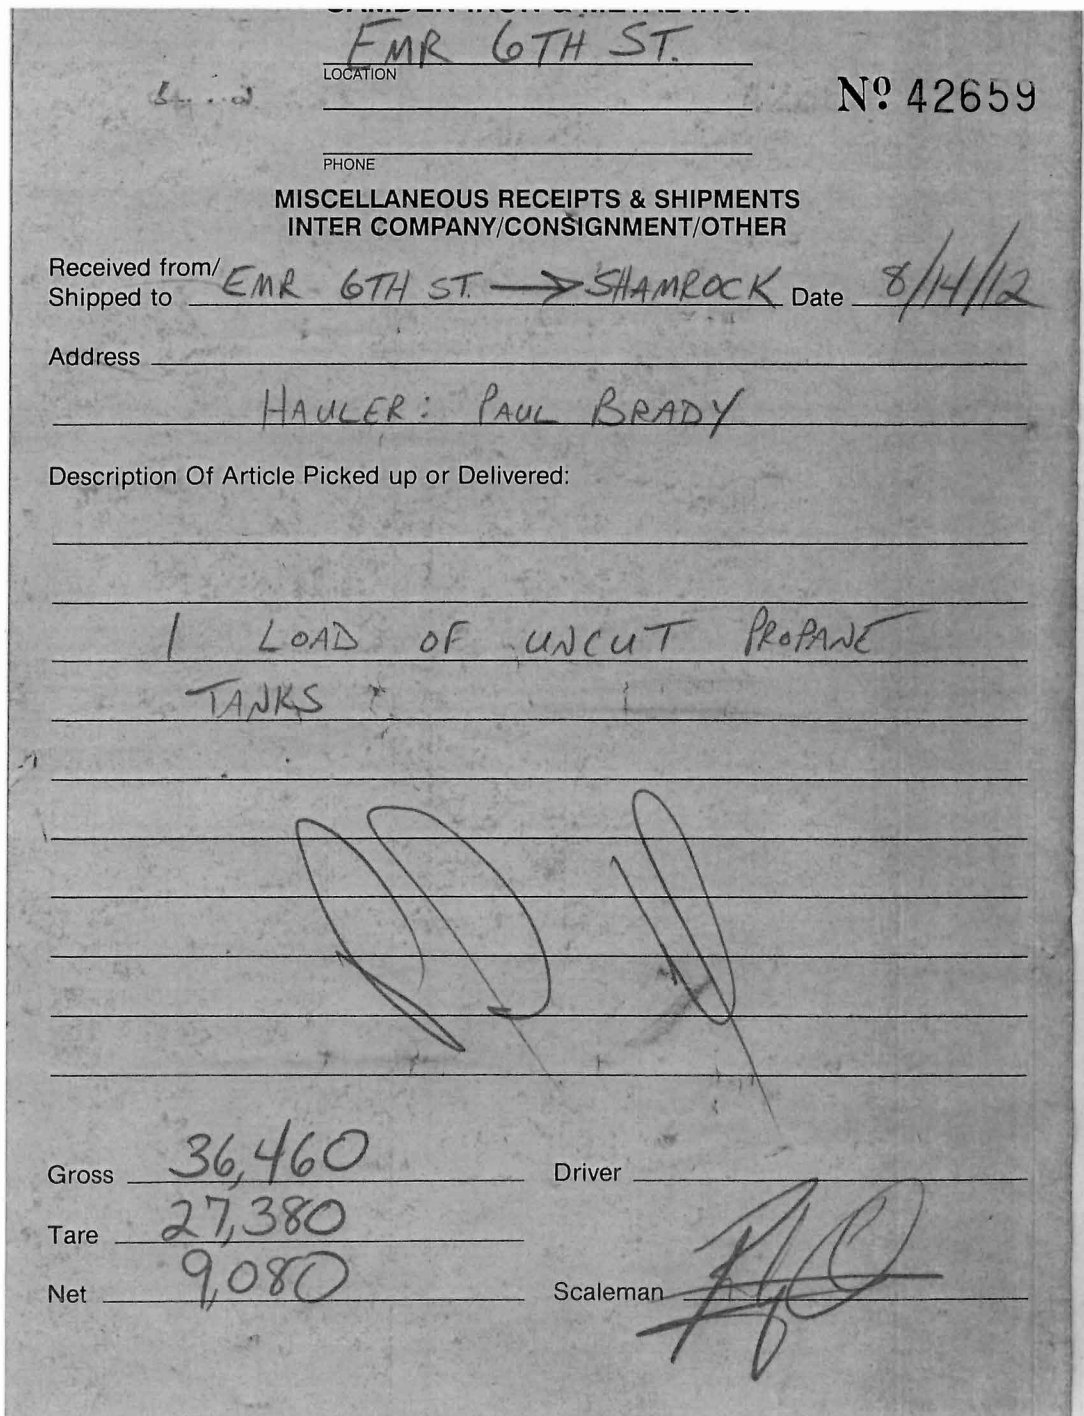 EMR 6TH ST.
LOCATION
Nº 42659
PHONE
MISCELLANEOUS RECEIPTS & SHIPMENTS
INTER COMPANY/CONSIGNMENT/OTHER
Received from/
Shipped to EMR 6TH ST. → SHAMROCK Date 8/14/12
Address
HAULER: PAUL BRADY
Description Of Article Picked up or Delivered:
1 LOAD OF UNCUT PROPANE
TANKS
Gross 36,460 Driver
Tare 27,380
Net 9,080 Scaleman